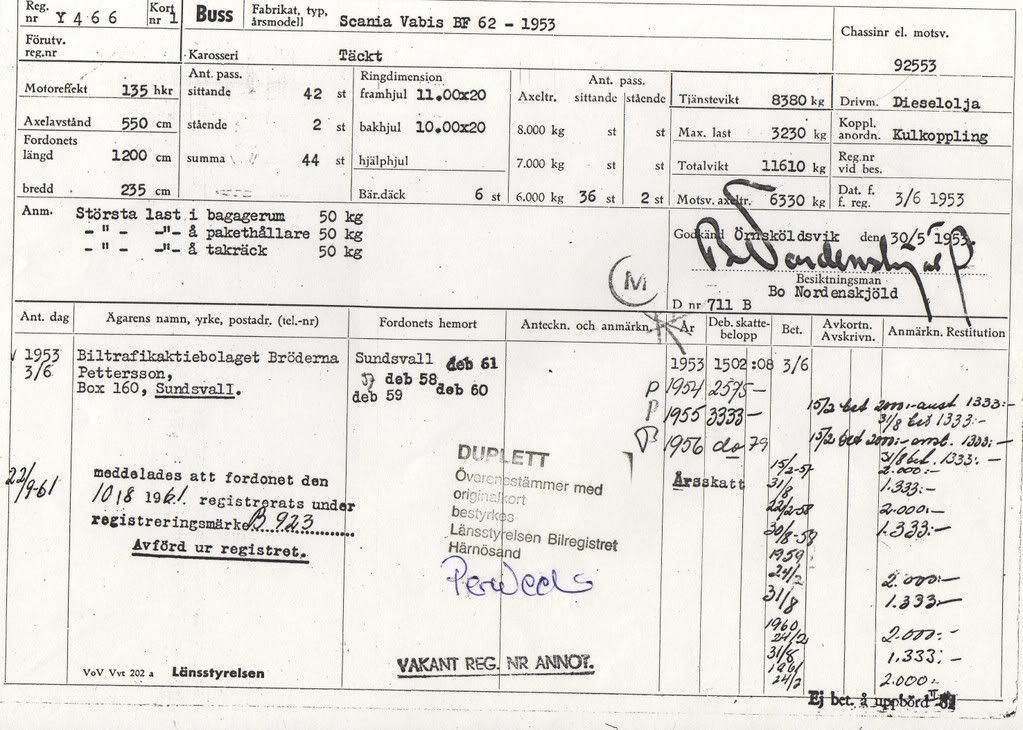 Reg. nr Y 466 Kort nr 1 Buss Fabrikat, typ, årsmodell Scania Vabis BF 62 - 1953
Chassinr el. motsv. 92553
Förutv. reg.nr
Karosseri Täckt
Motoreffekt 135 hkr
Axelavstånd 550 cm
Fordonets längd 1200 cm
bredd 235 cm
Ant. pass.
sittande 42 st
stående 2 st
summa 44 st
Ringdimension
framhjul 11.00x20
bakhjul 10.00x20
hjälphjul
Bär.däck 6 st
Ant. pass.
Axeltr. sittande stående
8.000 kg st st
7.000 kg st st
6.000 kg 36 st 2 st
Tjänstevikt 8380 kg
Max. last 3230 kg
Totalvikt 11610 kg
Motsv. axeltr. 6330 kg
Drivm. Dieselolja
Koppl. anordn. Kulkoppling
Reg.nr vid bes.
Dat. f. f. reg. 3/6 1953
Anm. Största last i bagagerum 50 kg
- " - -"- å pakethållare 50 kg
- " - -"- å takräck 50 kg
M
Godkänd Örnsköldsvik den 30/5 1953
Bo Nordenskjöld
Besiktningsman
Bo Nordenskjöld
D nr 711 B
Ant. dag Ägarens namn, yrke, postadr. (tel.-nr) Fordonets hemort Anteckn. och anmärkn. År Deb. skatte-belopp Bet. Avkortn. Avskrivn. Anmärkn. Restitution
1953 3/6
Biltrafikaktiebolaget Bröderna
Pettersson,
Box 160, Sundsvall.
Sundsvall deb 61
57 deb 58
deb 59 deb 60
1953 1502:08 3/6
P 1954 2575 -
P 1955 3333 -
15/2 bet 2000:- anst 1333:-
31/8 bet 1333:-
1956 do 79
15/2 bet 2000:- anst. 1333:-
31/8 bet. 1333:-
Årsskatt
15/2-57 2.000:-
31/8 1.333:-
22/2-58 2.000:-
30/8-58 1.333:-
1959
24/2 2.000:-
31/8 1.333:-
1960
24/2 2.000:-
31/8 1.333:-
1961
24/2 2.000:-
Ej bet. å uppbörd II
22/9-61
meddelades att fordonet den
10/8 1961 registrerats under
registreringsmärke B 923
Avförd ur registret.
DUPLETT
Överensstämmer med
originalkort
bestyrkes
Länsstyrelsen Bilregistret
Härnösand
VAKANT REG. NR ANNOT.
VoV Vvt 202 a Länsstyrelsen